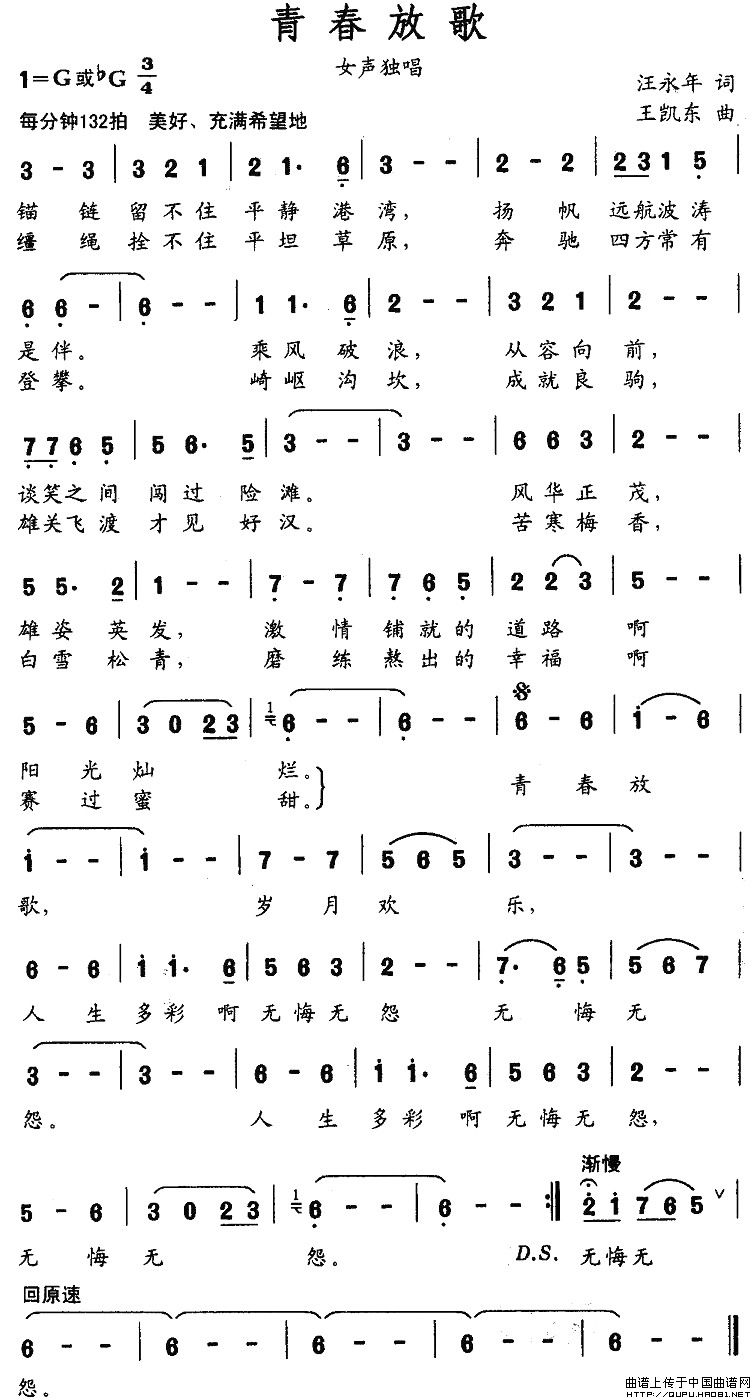 青春放歌
女声独唱
1=G或♭G 3/4
汪永年 词
王凯东 曲
每分钟132拍 美好、充满希望地
3 - 3 | 3 2 1 | 2 1· 6 | 2 - - | 2 - 2 | 2 3 1 5 |
锚 链 留不住 平静 港湾， 扬 帆 远航波涛
缰 绳 拴不住 平坦 草原， 奔 驰 四方常有
6 6 - | 6 - - | 1 1· 6 | 2 - - | 3 2 1 | 2 - - |
是伴。 乘风 破浪， 从容向前，
登攀。 崎岖 沟坎， 成就良驹，
7 7 6 5 | 5 6· 5 | 3 - - | 3 - - | 6 6 3 | 2 - - |
谈笑之间 闯过 险滩。 风华正茂，
雄关飞渡 才见 好汉。 苦寒梅香，
5 5· 2 | 1 - - | 7 - 7 | 7 6 5 | 2 2 3 | 5 - - |
雄姿 英发， 激 情 铺就的 道路 啊
白雪 松青， 磨 练 熬出的 幸福 啊
5 - 6 | 3 0 2 3 | 1 6 - - | 6 - - | 𝄋 6 - 6 | i - 6 |
阳 光 灿 烂。
赛 过 蜜 甜。
青 春 放
i - - | i - - | 7 - 7 | 5 6 5 | 3 - - | 3 - - |
歌， 岁 月 欢 乐，
6 - 6 | i i· 6 | 5 6 3 | 2 - - | 7· 6 5 | 5 6 7 |
人 生 多彩 啊 无悔无 怨 无 悔 无
3 - - | 3 - - | 6 - 6 | i i· 6 | 5 6 3 | 2 - - |
怨。 人 生 多彩 啊 无悔无 怨，
渐慢
5 - 6 | 3 0 2 3 | 1 6 - - | 6 - - :‖ 2 i 7 6 5 ∨ |
无 悔 无 怨。 D.S. 无悔无
回原速
6 - - | 6 - - | 6 - - | 6 - - | 6 - - ‖
怨。
曲谱上传于中国曲谱网
HTTP://QUPU.HAO81.NET